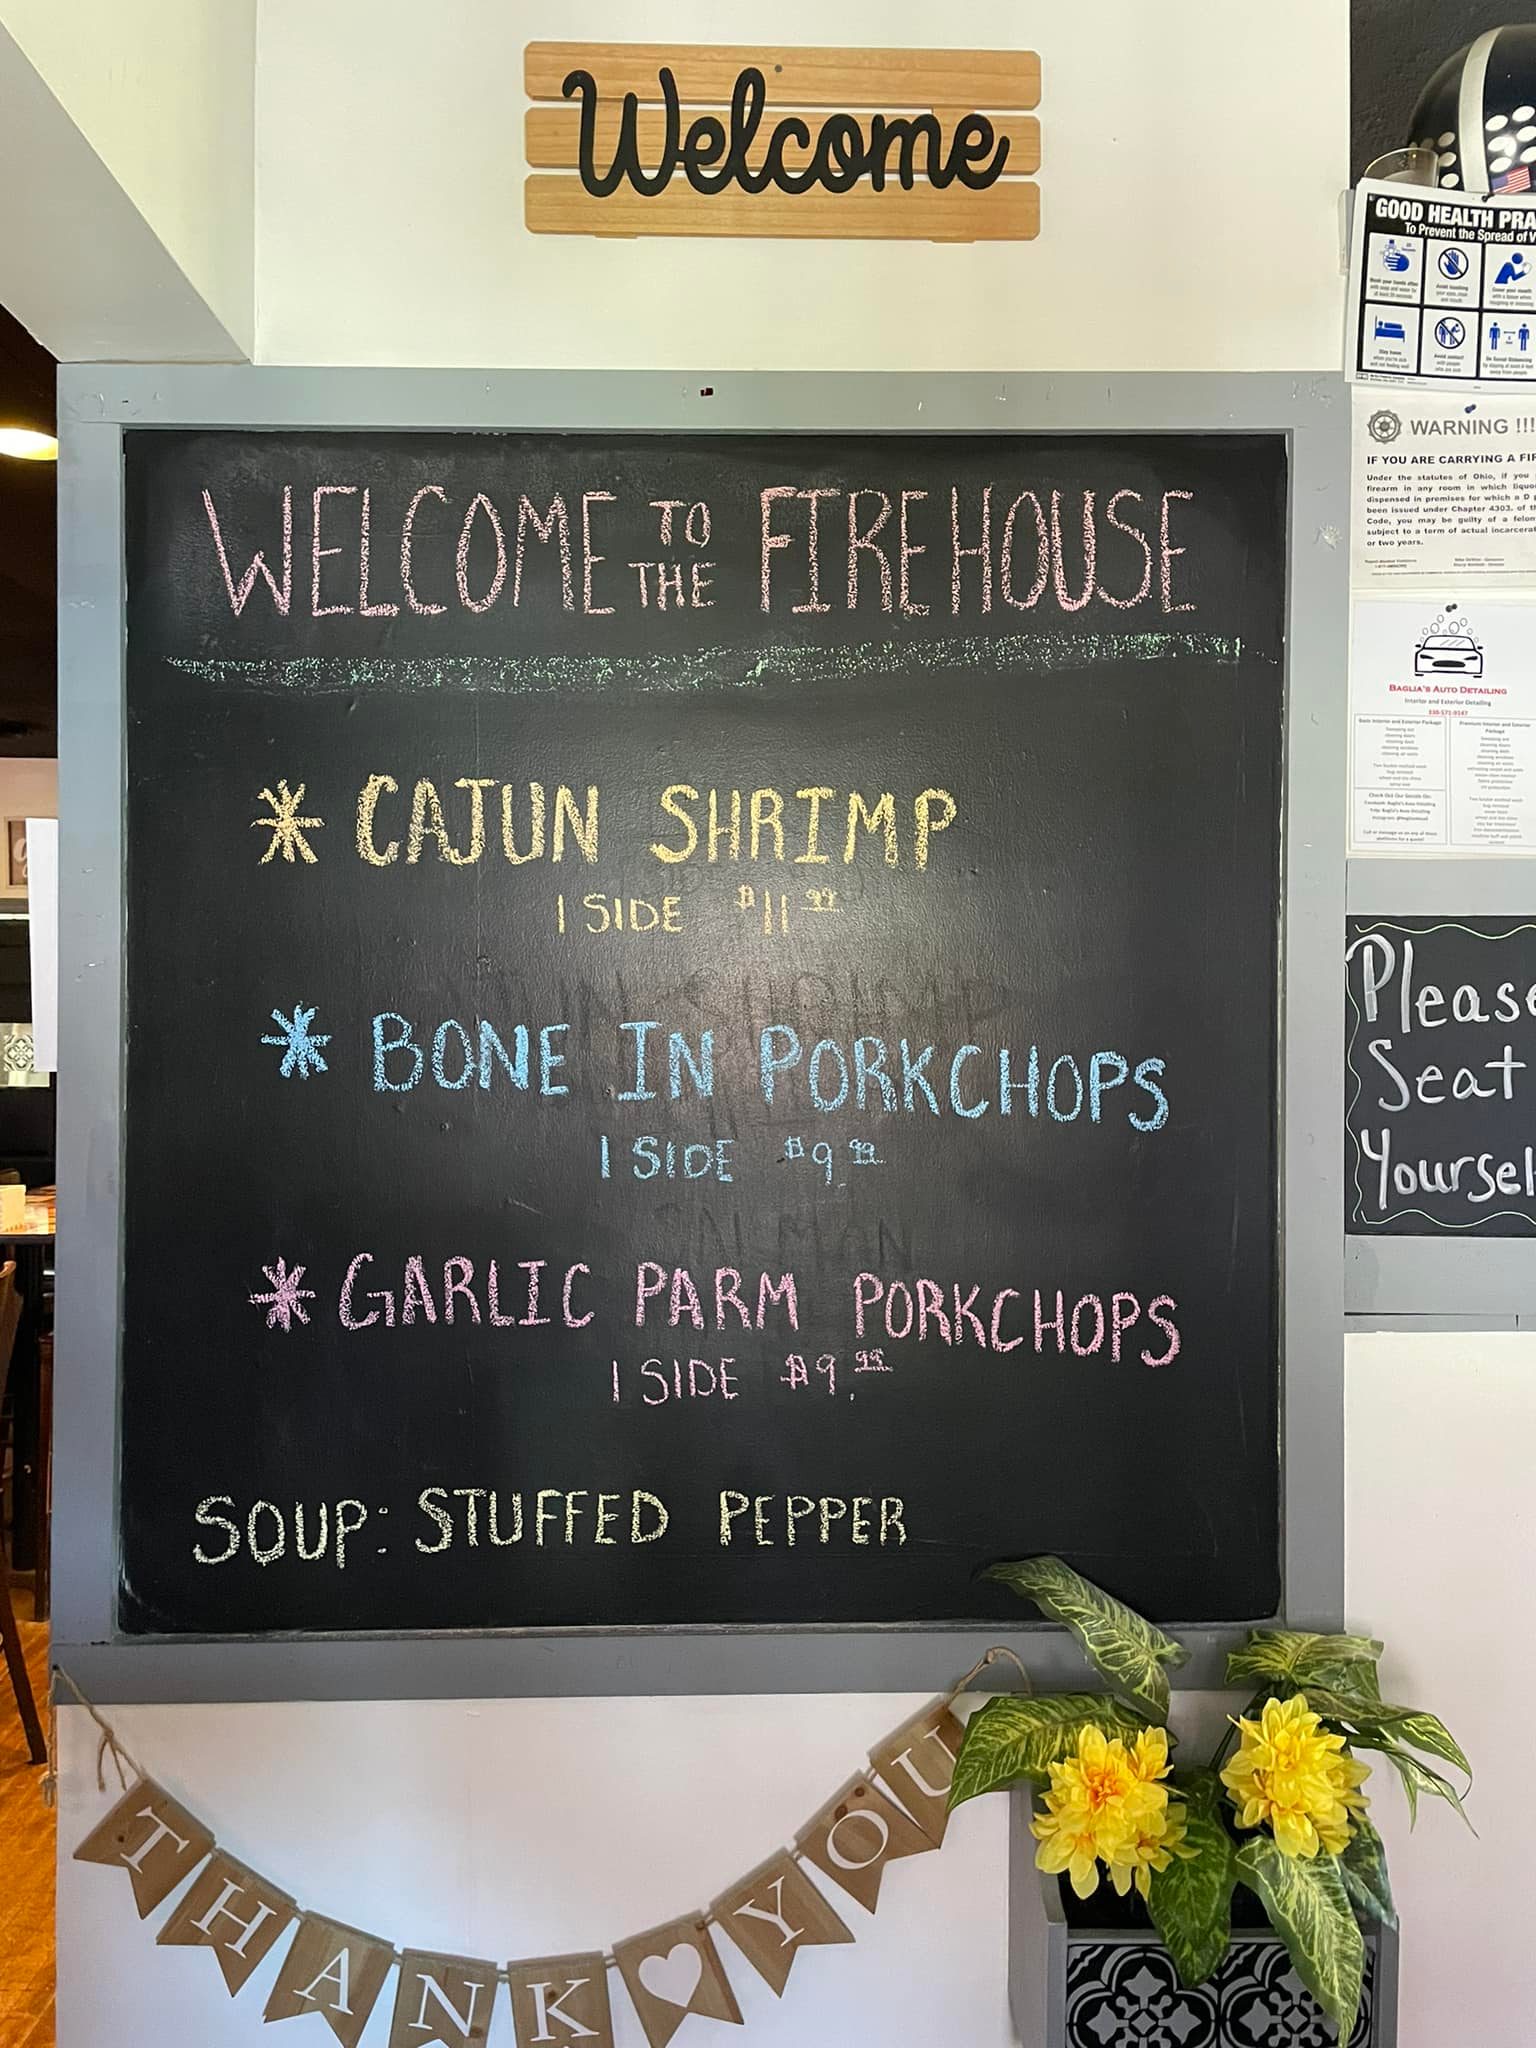 Welcome
WELCOME TO THE FIREHOUSE
* CAJUN SHRIMP
1 SIDE $11.99
* BONE IN PORKCHOPS
1 SIDE $9.99
* GARLIC PARM PORKCHOPS
1 SIDE $9.99
SOUP: STUFFED PEPPER
THANK YOU
GOOD HEALTH PRA
To Prevent the Spread of V
Stay home
WARNING !!!
IF YOU ARE CARRYING A FIR
Under the statutes of Ohio, if you
firearm in any room in which liquo
dispensed in premises for which a D
been issued under Chapter 4303. of th
Code, you may be guilty of a felon
subject to a term of actual incarcerat
or two years.
BAGLIA'S AUTO DETAILING
Interior and Exterior Detailing
330-571-9147
Basic Interior and Exterior Package
Premium Interior and Exterior
Package
Please
Seat
Yoursel